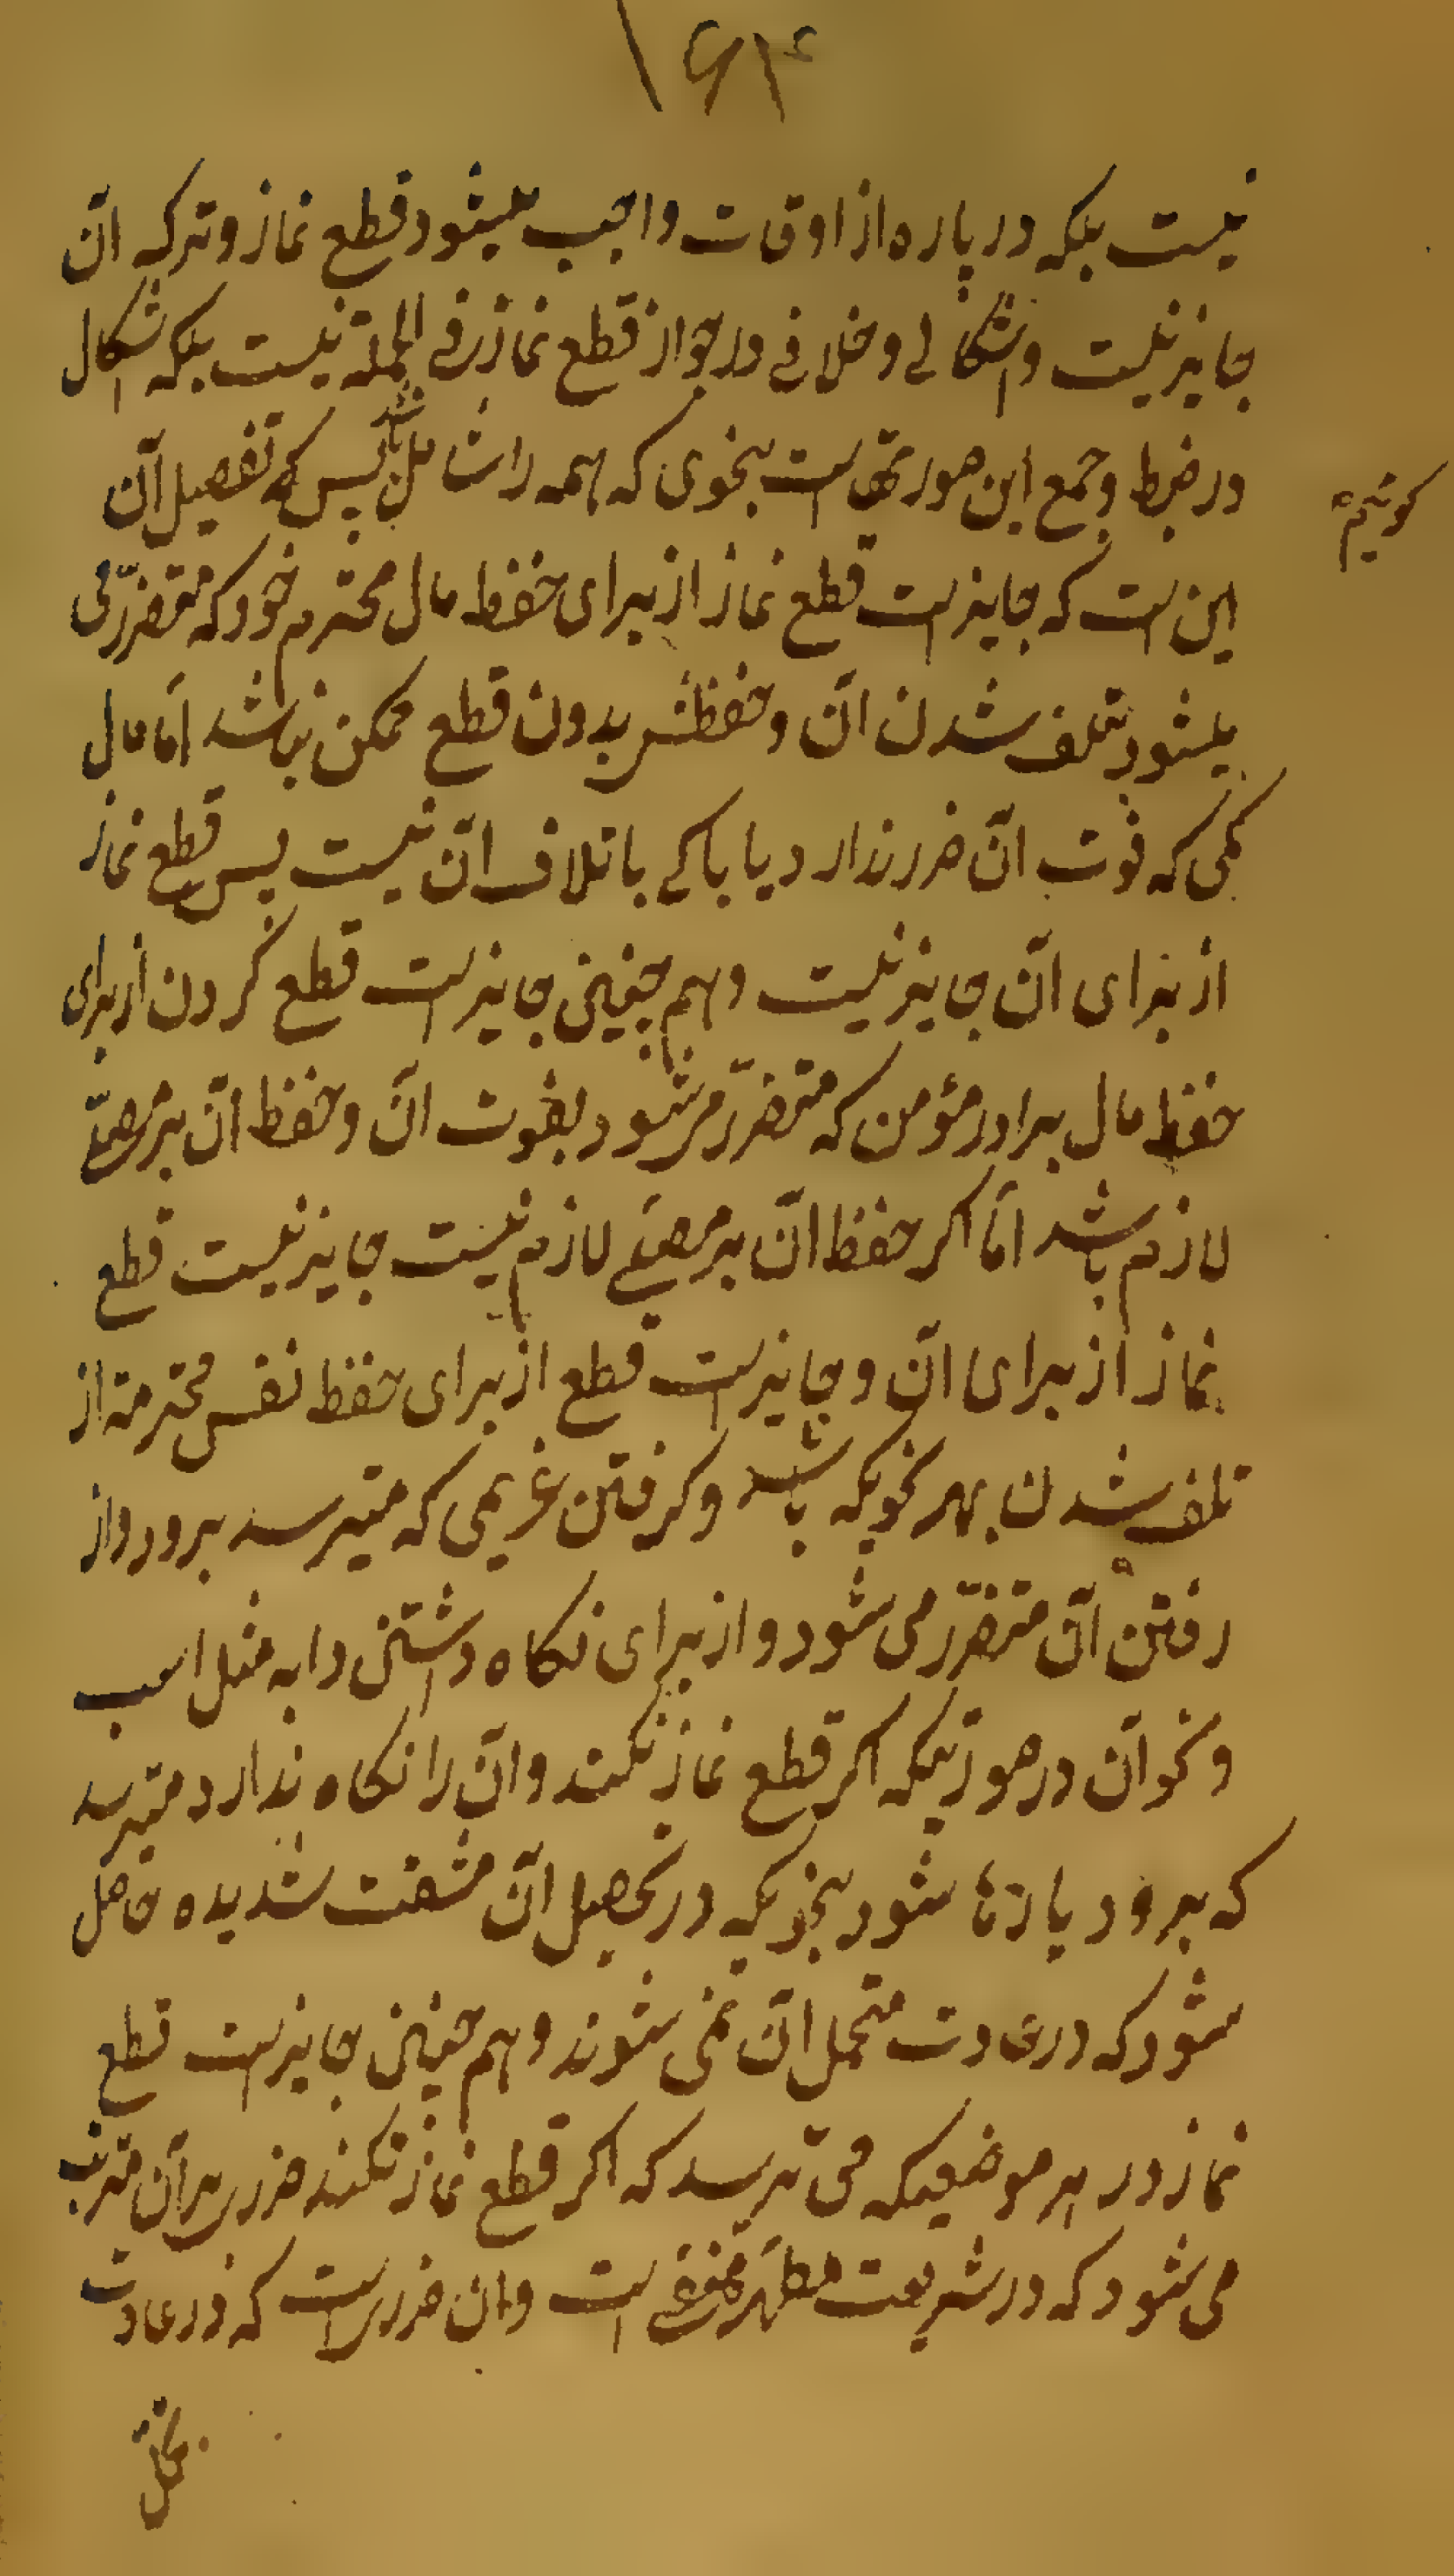 ۱۶۱۴
نیست بلکه در پاره از اوقات واجب میشود قطع نماز و ترکه ان
جایز نیست و اشکالی و خلافی در جواز قطع نماز فی الجملة نیست بلکه اشکال
در ضبط و جمع این صورتهاست بنحوی که همه را شامل باشد پس که تفصیل آن
کوئیم
این است که جایز است قطع نماز از برای حفظ مال محترم خود که متضرر می
میشود بتلف شدن ان و حفظش بدون قطع ممکن نباشد امّا مال
کمی که فوت انّ ضرر ندارد یا باکے باتلاف انّ نیست پس قطع نماز
از برای انّ جایز نیست و هم چنین جایز است قطع کردن از برای
حفظ مال برادر مؤمن که متضرّر میشود بفوت انّ و حفظ انّ بر مصلّے
لازم باشد امّا اکر حفظ انّ بر مصلّے لازم نیست جایز نیست قطع
نماز از برای انّ و جایز است قطع از برای حفظ نفس محترمة از
تلف شدن بهر نحویکه باشد و کرفتن غریمی که میترسد برود و از
رفتن انّ متضرّر می شود و از برای نکاه داشتن دابه مثل اسب
و نحو آن در صورتیکه اکر قطع نماز نکند و انّ را نکاه ندارد میترسد
که برود یا رها شود بنحویکه در تحصیل انّ مشقت شدیده حاصل
شود که در عادت متحمل انّ نمی شوند و هم چنین جایز است قطع
نماز در هر موضعیکه می ترسد که اکر قطع نماز نکند ضرری بر آن مترتب
می شود که در شریعت مطهّره منفے است و ان ضرریست که در عادت